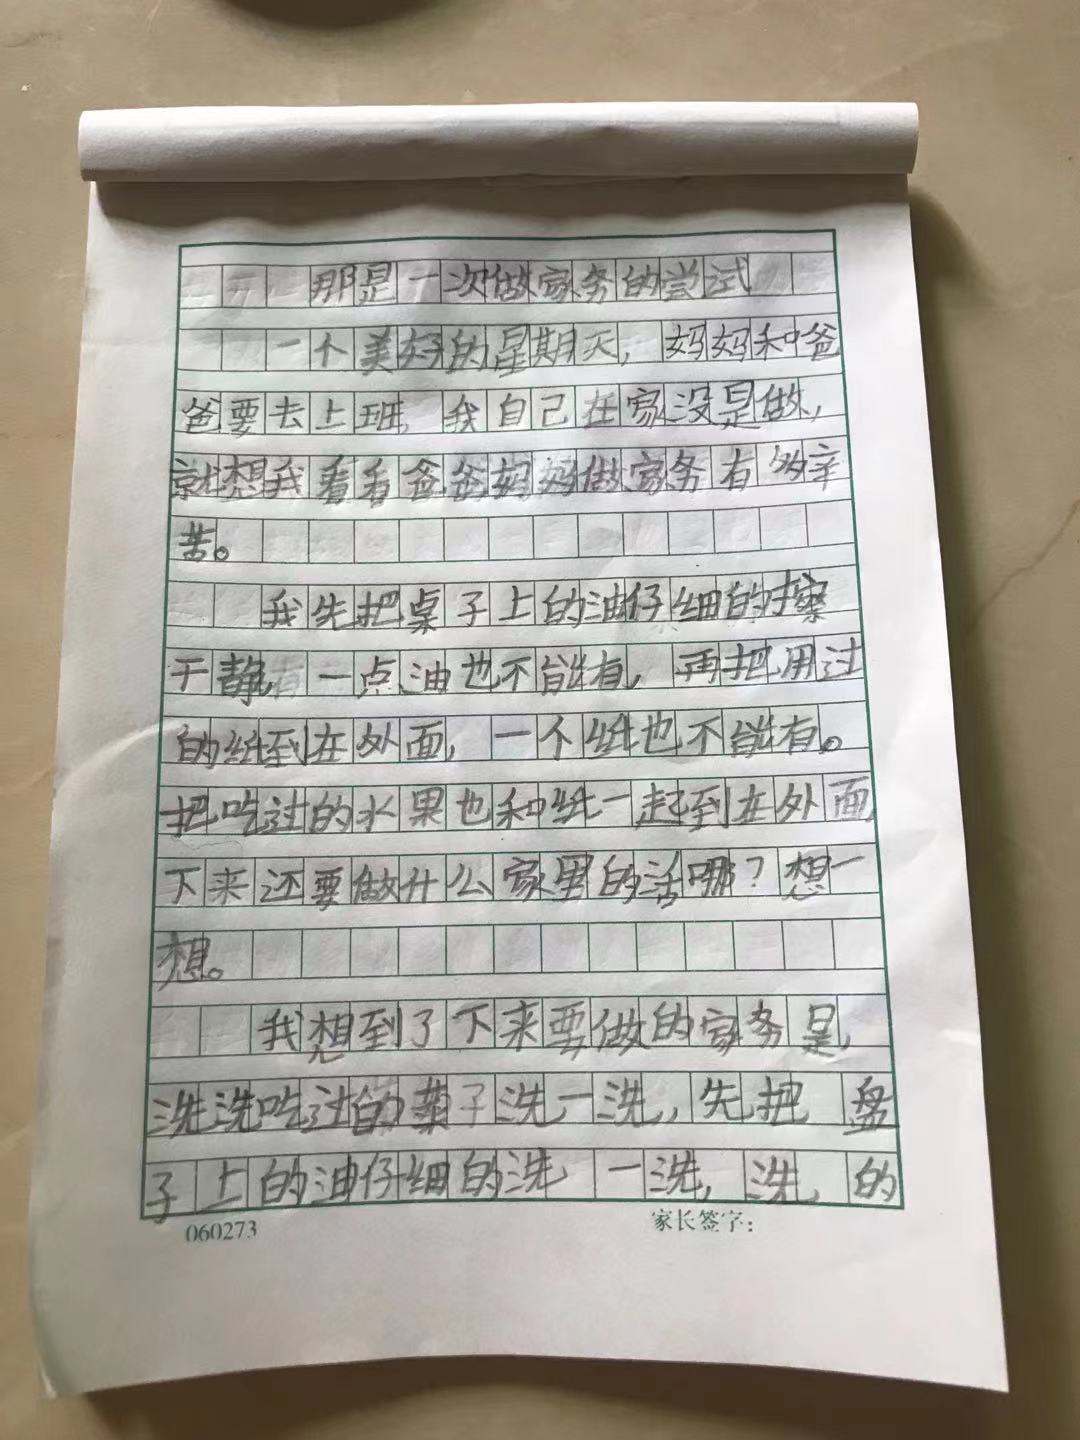 那是一次做家务的尝试
一个美好的星期天，妈妈和爸
爸要去上班，我自己在家没是做，
就想我看看爸爸妈妈做家务有多辛
苦。
我先把桌子上的油仔细的擦
干静，一点油也不能有，再把用过
的纸到在外面，一个纸也不能有。
把吃过的水果也和纸一起到在外面
下来还要做什么家里的活哪？想一
想。
我想到了下来要做的家务是，
洗洗吃过的菜子洗一洗，先把盘
子上的油仔细的洗一洗，洗，的
060273
家长签字：